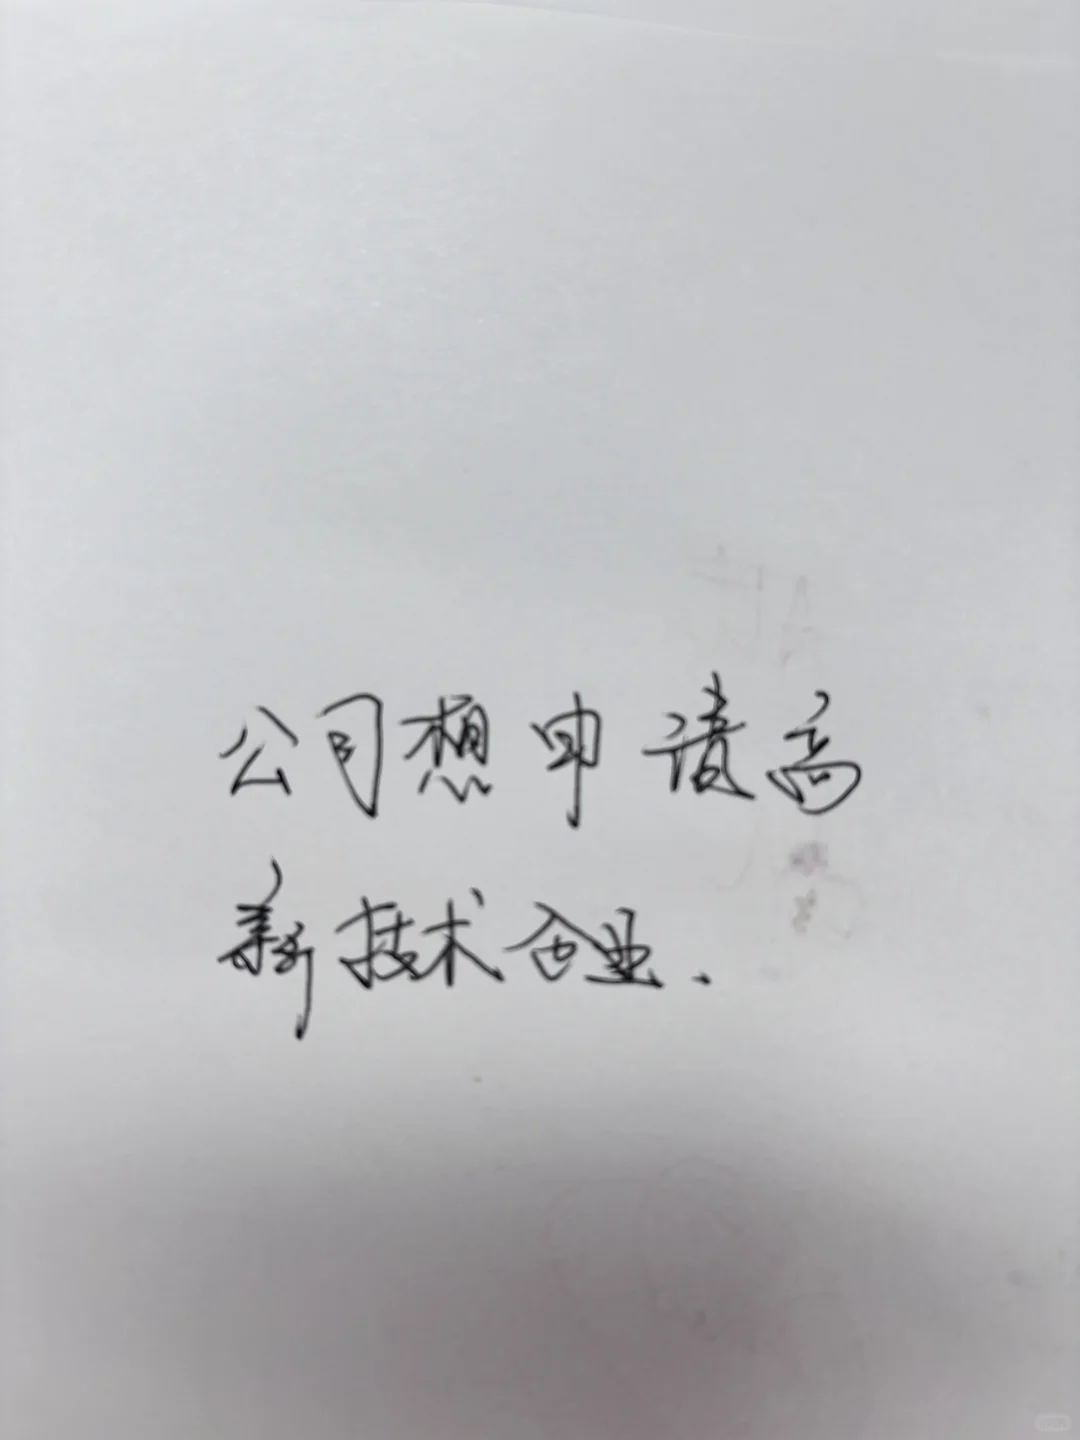 公司想申请高
新技术企业.